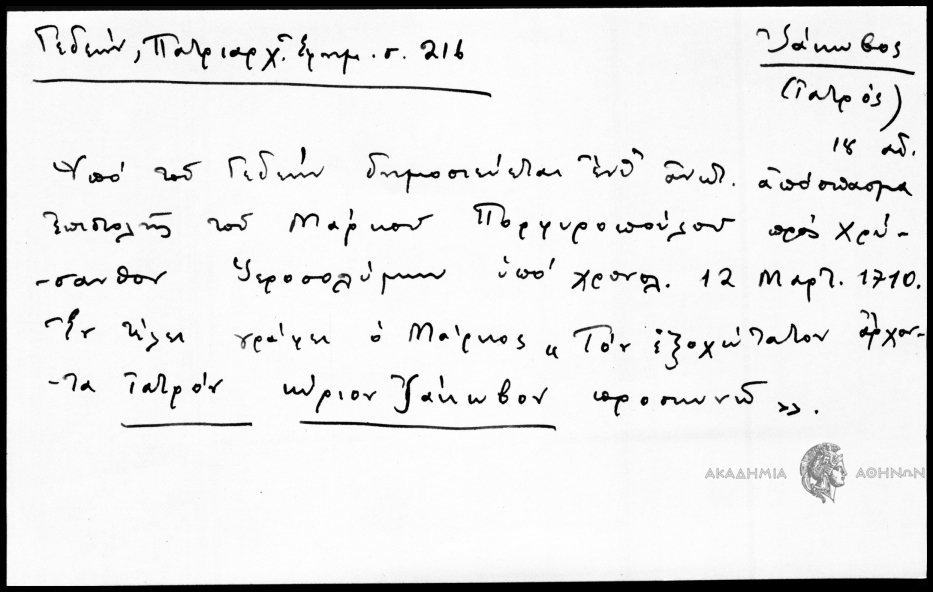 Γεδεών, Πατριαρχ. Ἐφημ. σ. 216
Ἰάκωβος
(ἰατρός)
18 αἰ.
Ὑπὸ τοῦ Γεδεὼν δημοσιεύεται ἔνθ' ἀνωτ. ἀπόσπασμα
ἐπιστολῆς τοῦ Μάρκου Πορφυροπούλου πρὸς Χρύ-
-σανθον Ἱεροσολύμων ὑπὸ χρονολ. 12 Μαρτ. 1710.
Ἐν τέλει γράφει ὁ Μάρκος «Τὸν ἐξοχώτατον ἄρχον-
-τα ἰατρὸν κύριον Ἰάκωβον προσκυνῶ».
ΑΚΑΔΗΜΙΑ ΑΘΗΝΩΝ